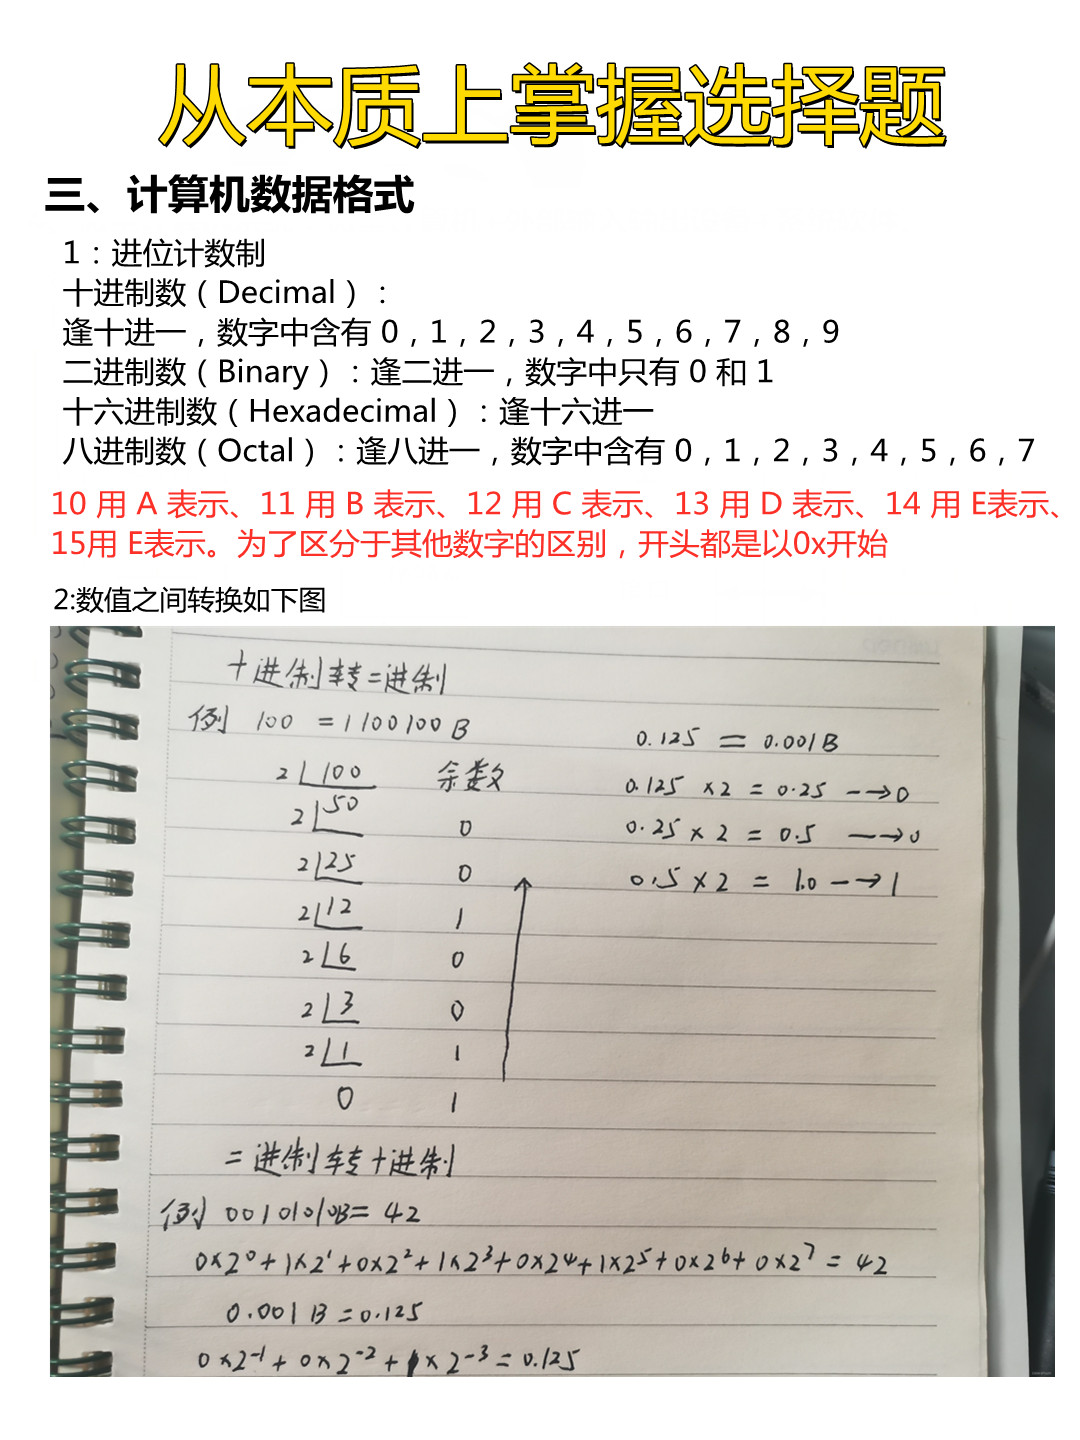 从本质上掌握选择题
三、计算机数据格式
1：进位计数制
十进制数（Decimal）：
逢十进一，数字中含有 0，1，2，3，4，5，6，7，8，9
二进制数（Binary）：逢二进一，数字中只有 0 和 1
十六进制数（Hexadecimal）：逢十六进一
八进制数（Octal）：逢八进一，数字中含有 0，1，2，3，4，5，6，7
10 用 A 表示、11 用 B 表示、12 用 C 表示、13 用 D 表示、14 用 E表示、
15用 E表示。为了区分于其他数字的区别，开头都是以0x开始
2:数值之间转换如下图
十进制转二进制
例 100 = 1100100B
2 100 余数
2 50 0
2 25 0
2 12 1
2 6 0
2 3 0
2 1 1
0 1
0.125 = 0.001B
0.125 ×2 = 0.25 →0
0.25 × 2 = 0.5 →0
0.5 × 2 = 1.0 →1
二进制转十进制
例 00101010B= 42
0×2⁰+1×2¹+0×2²+1×2³+0×2⁴+1×2⁵+0×2⁶+0×2⁷ = 42
0.001B=0.125
0×2⁻¹+0×2⁻²+1×2⁻³=0.125